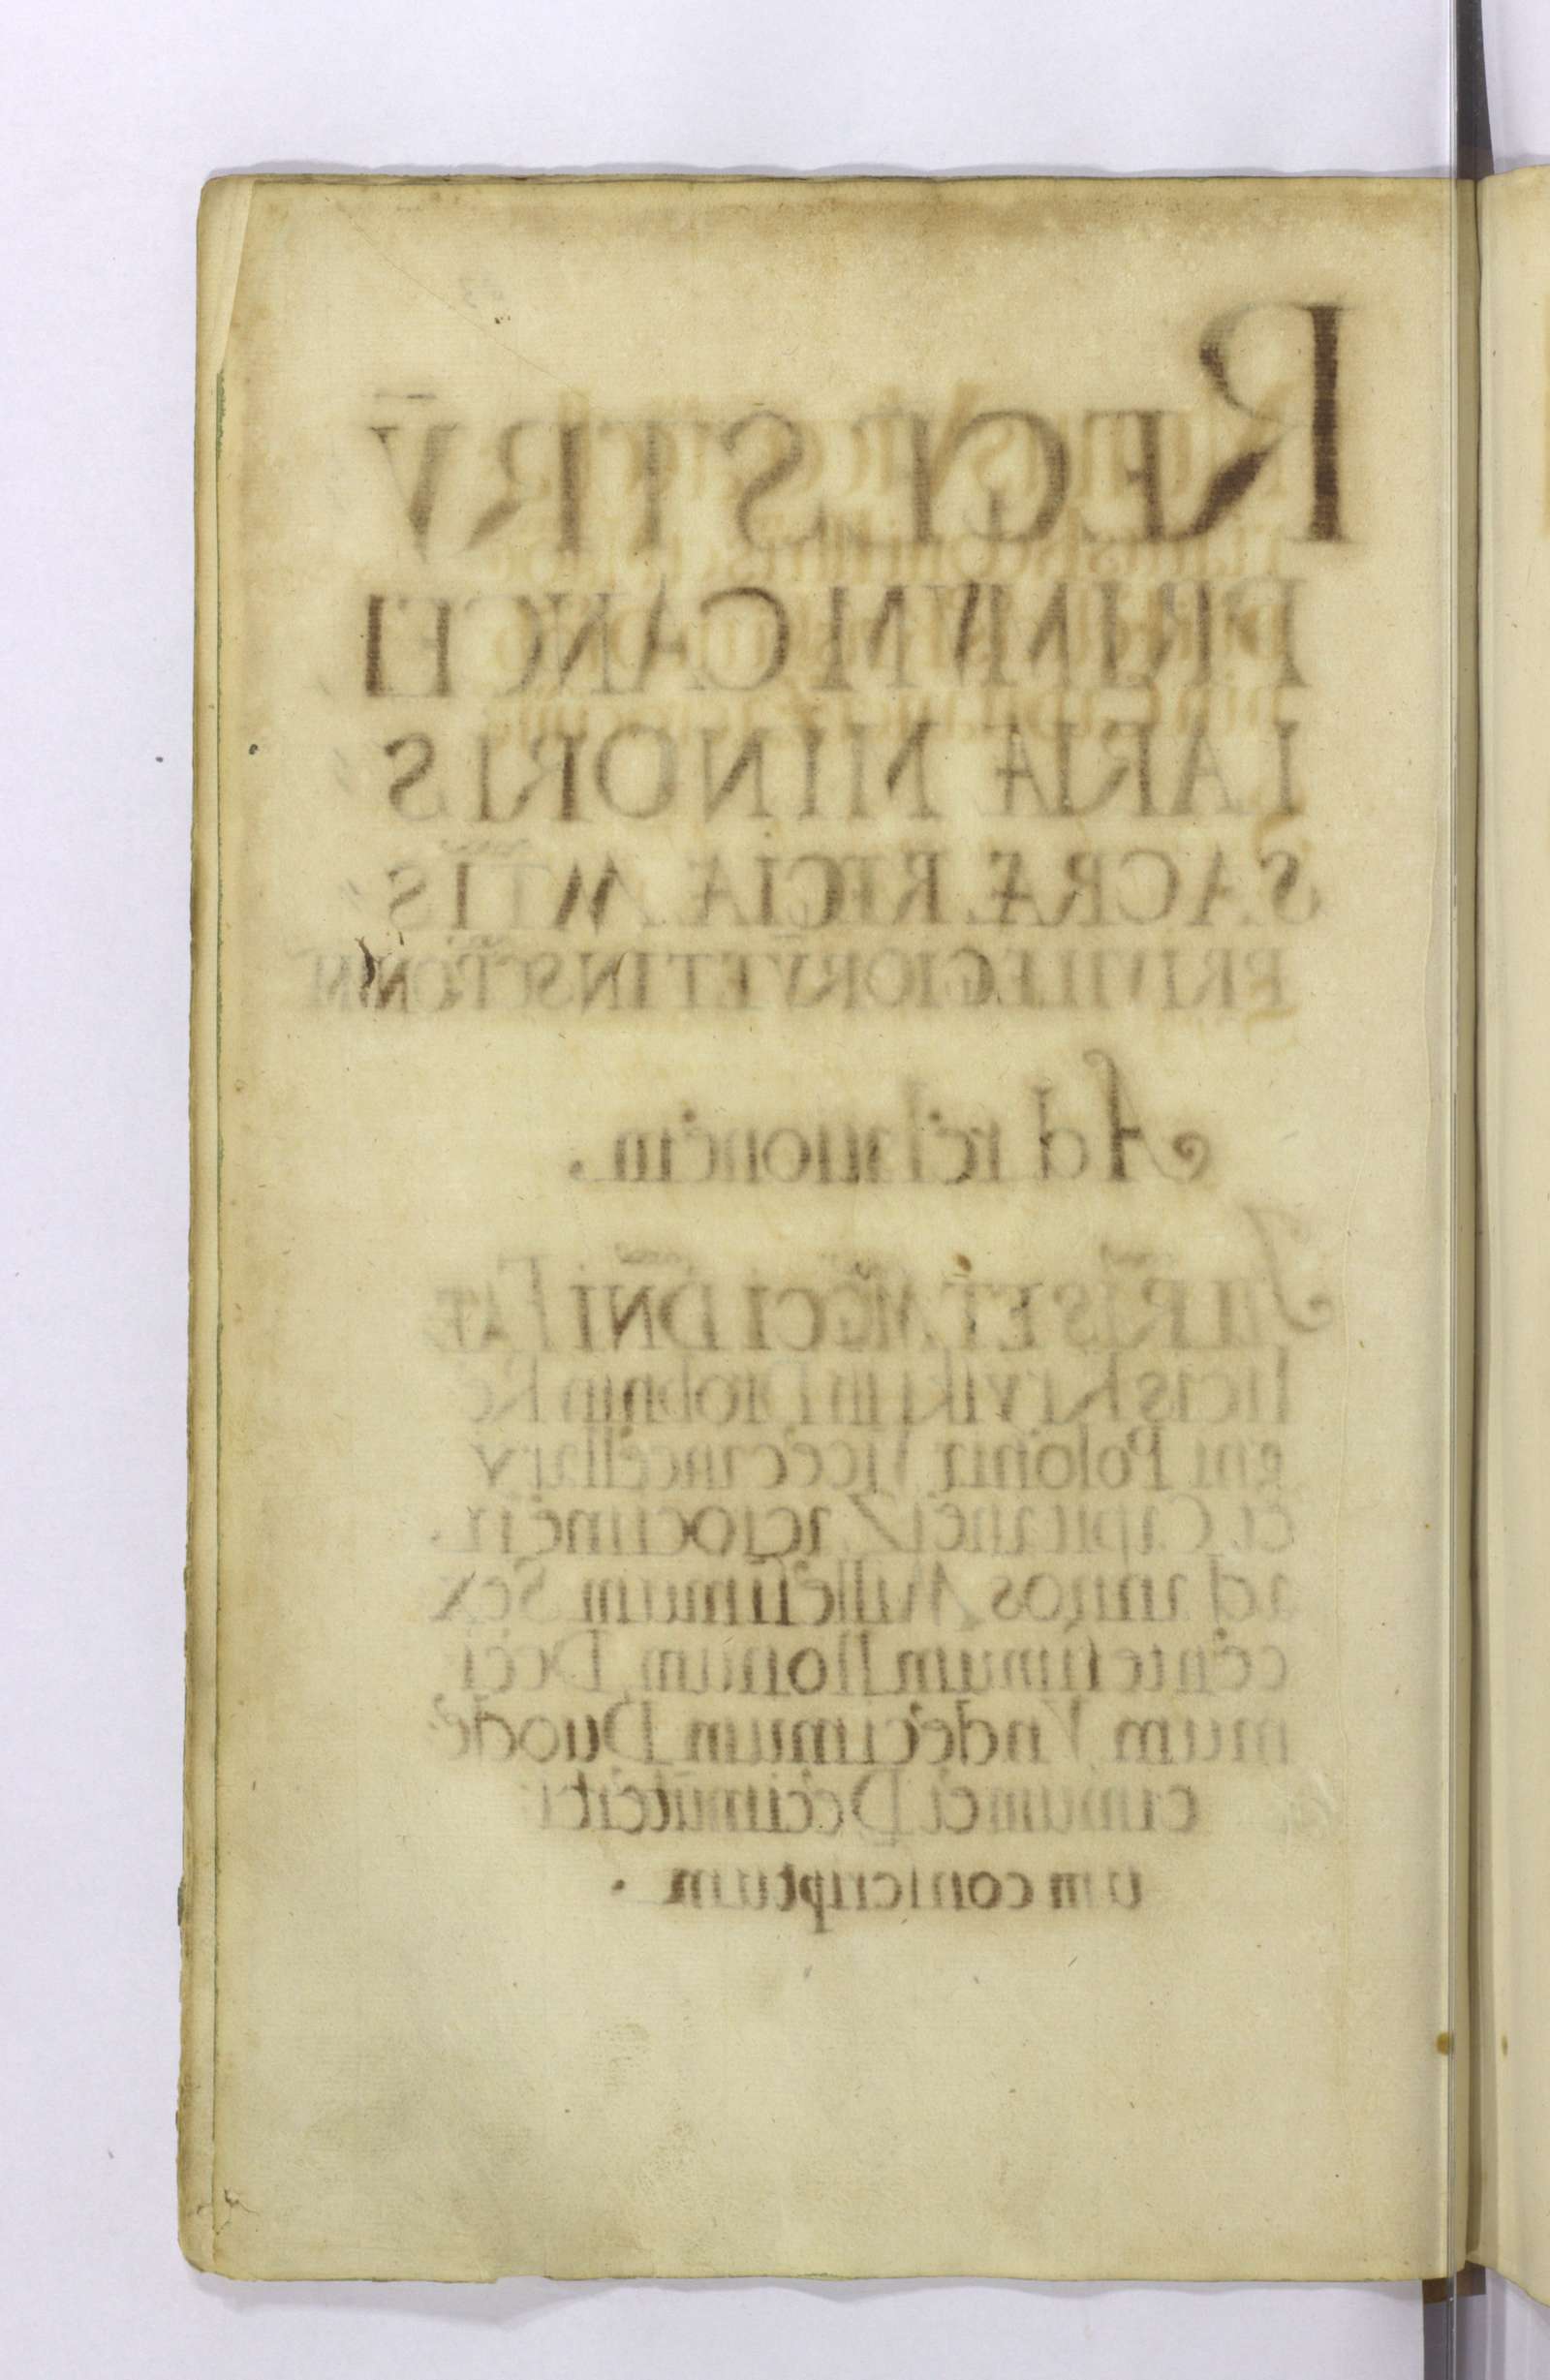 REGESTRṼ
PRIMṼM CANCEL
LARIÆ MINORIS
SACRÆ REGIÆ MTIS
PRIVILEGIORṼ ET INSCRPTIONṼM
Ad relationem.
ILLRIS ET MGCI DNI FÆ
licis Kryski in Drobnin Re
gni Poloniæ Vicecancellary
et Capitanei Zacrocimen.
ad annos Millesimum Sex
centesimum Nonum Deci
mum Vndecimum Duode
cimum et Decimũ terti
um conscriptum.